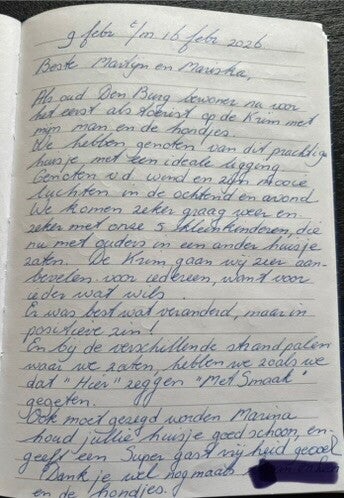 9 febr t/m 16 febr 2026
Beste Martyn en Mariska,
Als oud Den Burg bewoner nu voor
het eerst als toerist op de Krim met
mijn man en de hondjes.
We hebben genoten van dit prachtige
huisje, met een ideale ligging.
Genoten v.d. wind en zijn mooie
luchten in de ochtend en avond
We komen zeker graag weer en
zeker met onze 5 kleinkinderen, die
nu met ouders in een ander huisje
zaten. De Krim gaan wij zeer aan-
bevelen voor iedereen, want voor
ieder wat wils.
Er was best wat veranderd, maar in
positieve zin!
En bij de verschillende strandpalen
waar we zaten, hebben we zoals we
dat "Hier" zeggen "Met Smaak"
gegeten.
Ook moet gezegd worden Marina
houd jullie huisje goed schoon, en
geeft een Super gastvrijheid gevoel
Dank je wel nogmaals
en de hondjes.